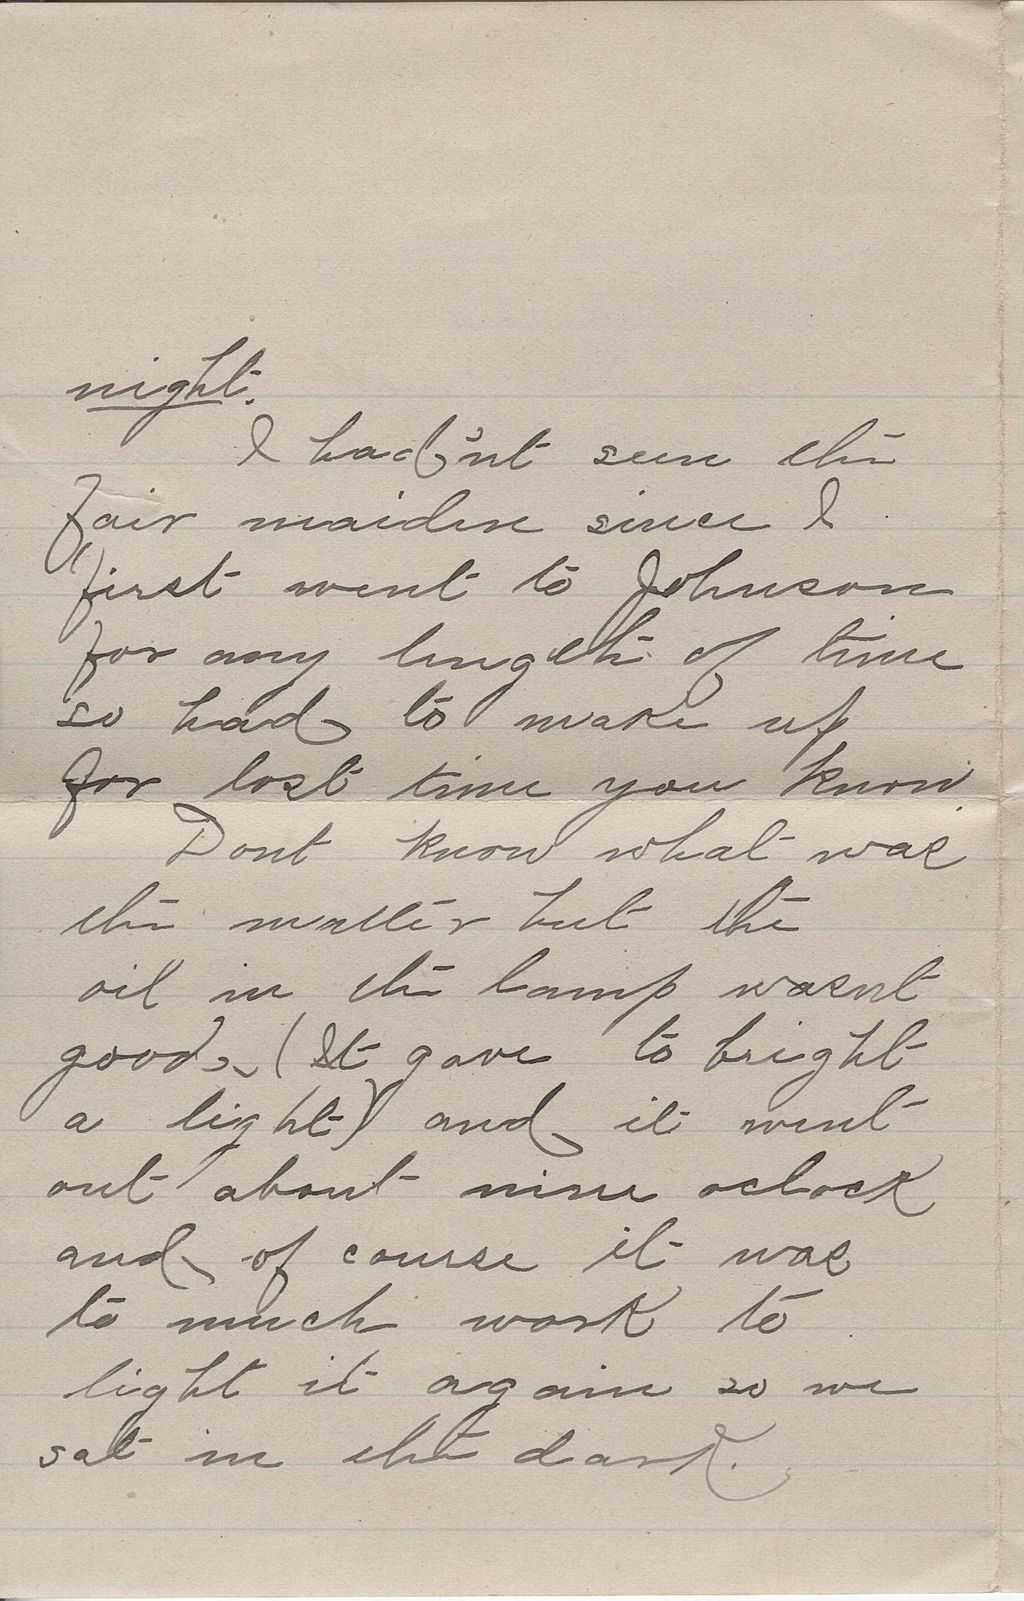 night.
I had'nt seen the
fair maiden since I
first went to Johnson
for any length of time
so had to make up
for lost time you know.
Dont know what was
the matter but the
oil in the lamp wasnt
good, (It gave to bright
a light) and it went
out about nine oclock
and of course it was
to much work to
light it again so we
sat in the dark.